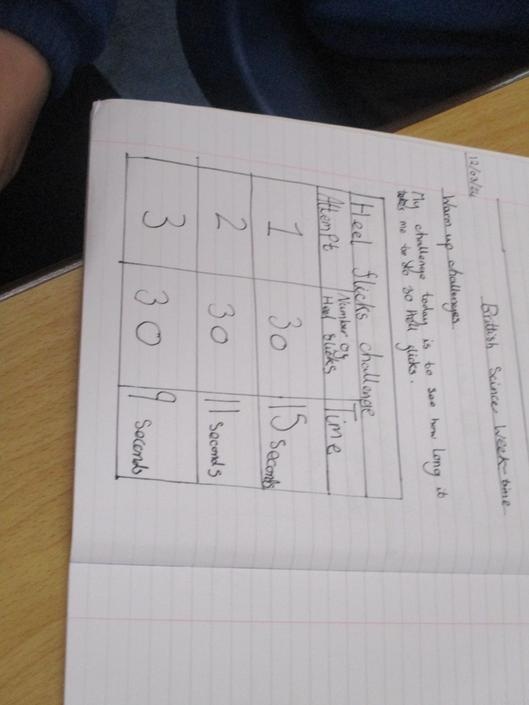 12/03/24
British Science Week time
Warm up challenges.
My challenge today is to see how long it
takes me to do 30 heel flicks.
Heel flicks challenge
Attempt Number of Heel flicks Time
1 30 15 seconds
2 30 11 seconds
3 30 9 seconds